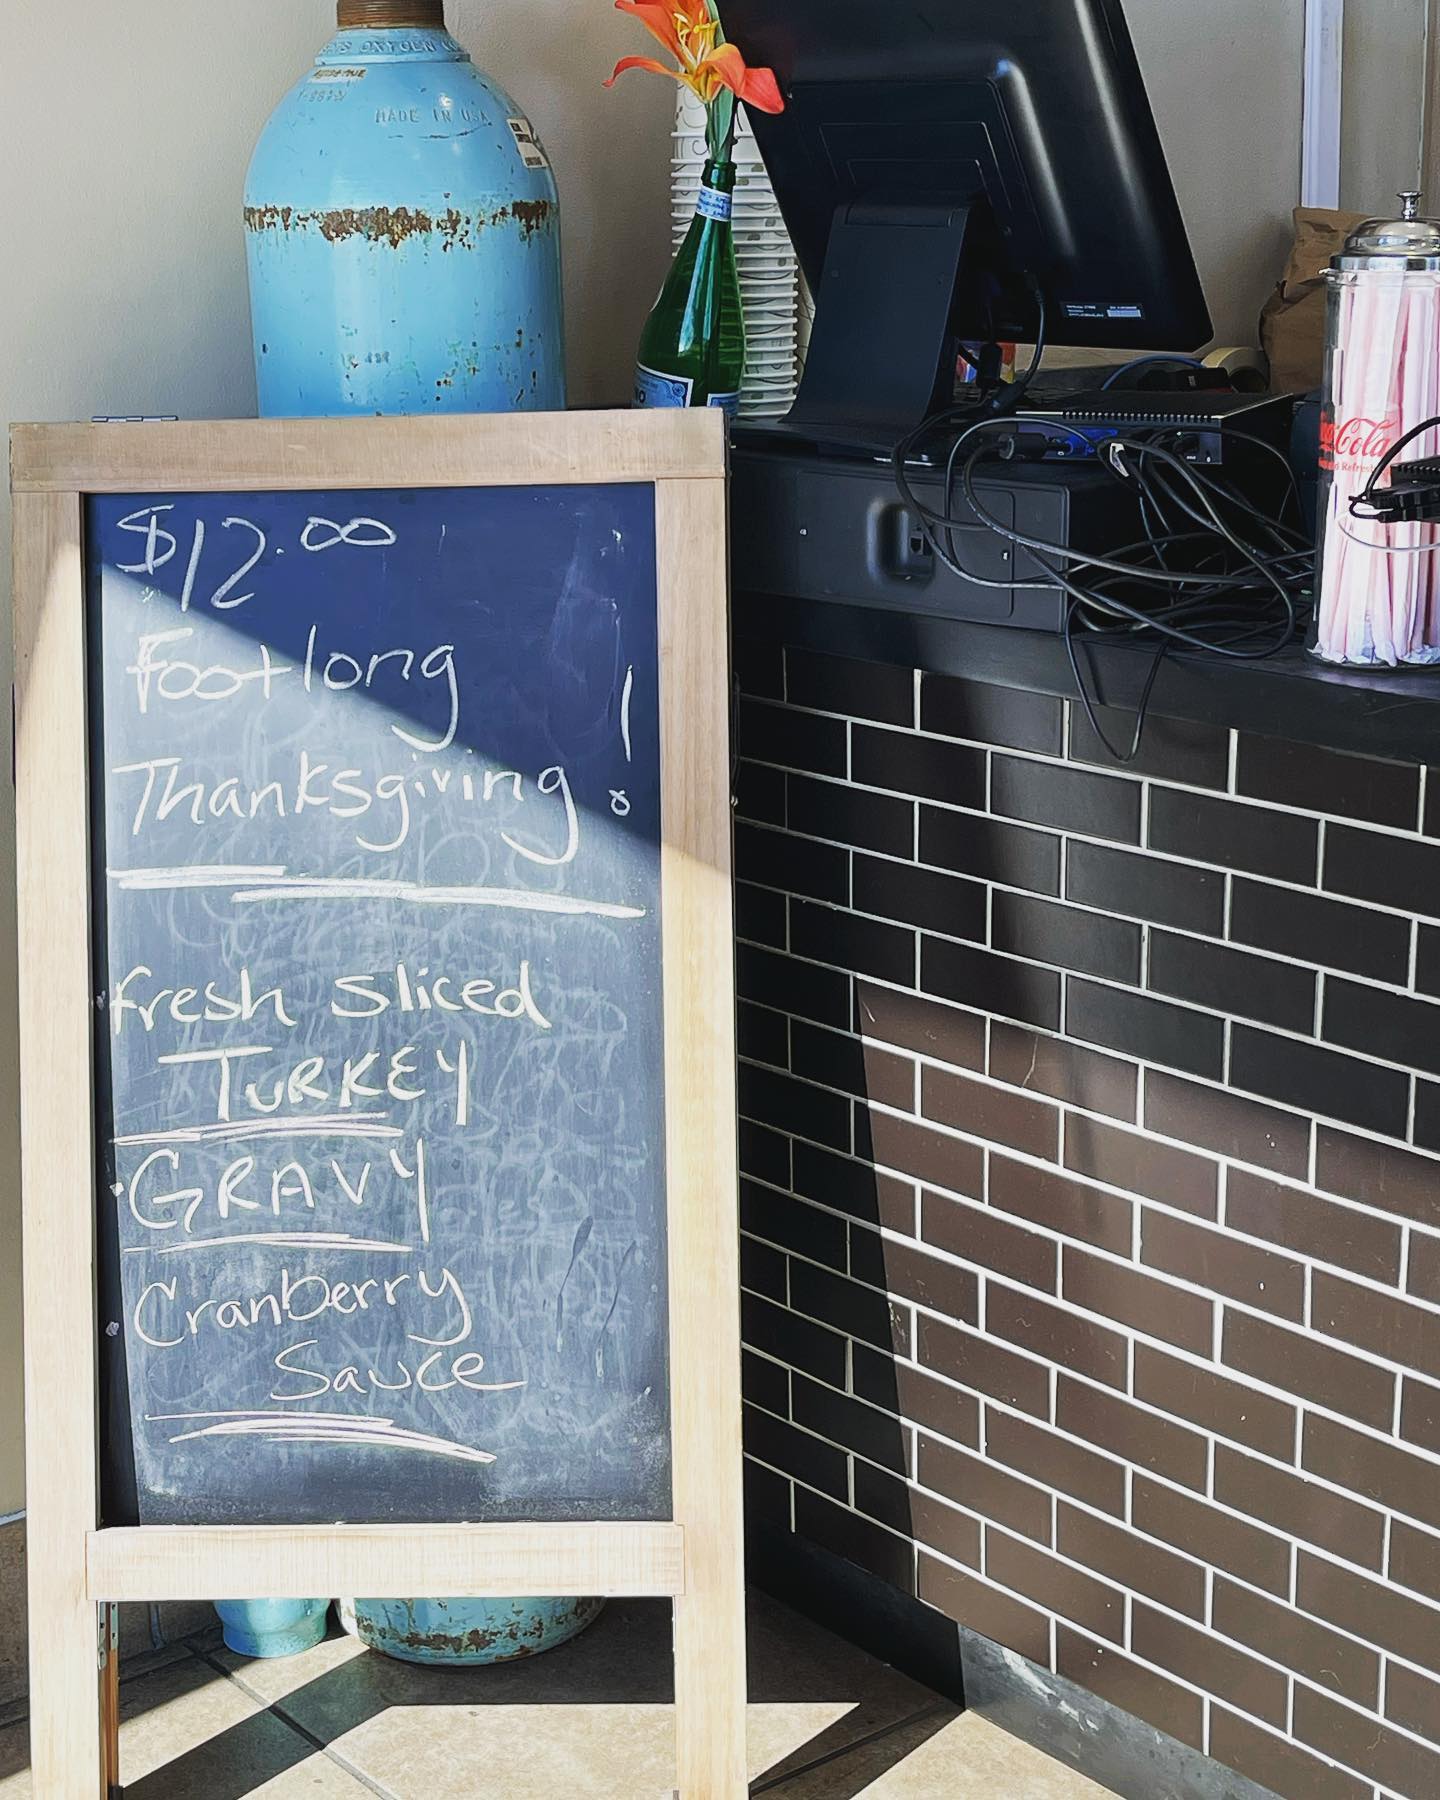 OXYGEN
MADE IN USA
$12.00
Footlong
Thanksgiving!
fresh sliced
TURKEY
GRAVY
Cranberry
Sauce
Coca-Cola